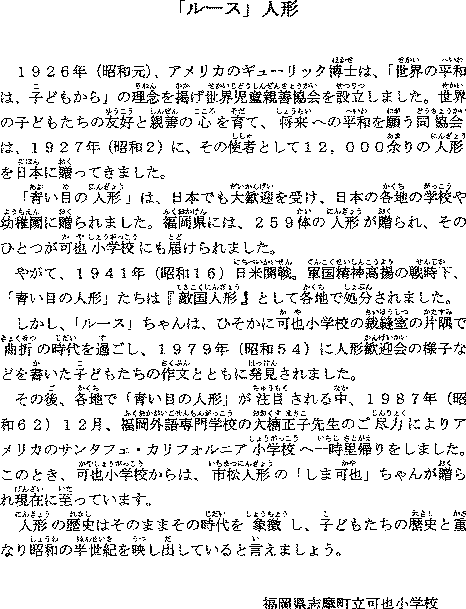 「ルース」人形
　１９２６年（昭和元）、アメリカのギューリック博士は、「世界の平和
は、子どもから」の理念を掲げ世界児童親善協会を設立しました。世界
の子どもたちの友好と親善の心を育て、将来への平和を願う同協会
は、１９２７年（昭和２）に、その使者として１２，０００余りの人形
を日本に贈ってきました。
　「青い目の人形」は、日本でも大歓迎を受け、日本の各地の学校や
幼稚園に贈られました。福岡県には、２５９体の人形が贈られ、その
ひとつが可也小学校にも届けられました。
　やがて、１９４１年（昭和１６）日米開戦。軍国精神高揚の戦時下、
「青い目の人形」たちは『敵国人形』として各地で処分されました。
　しかし、「ルース」ちゃんは、ひそかに可也小学校の裁縫室の片隅で
曲折の時代を過ごし、１９７９年（昭和５４）に人形歓迎会の様子な
どを書いた子どもたちの作文とともに発見されました。
　その後、各地で「青い目の人形」が注目される中、１９８７年（昭
和６２）１２月、福岡外語専門学校の大楠正子先生のご尽力によりア
メリカのサンタフェ・カリフォルニア小学校へ一時里帰りをしました。
このとき、可也小学校からは、市松人形の「しま可也」ちゃんが贈ら
れ現在に至っています。
　人形の歴史はそのままその時代を象徴し、子どもたちの歴史と重
なり昭和の半世紀を映し出していると言えましょう。
福岡県志摩町立可也小学校